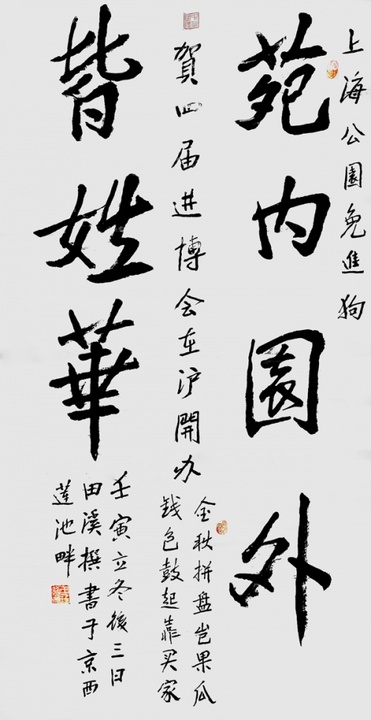 上海公園免進狗
苑内園外
賀四届进博会在沪開办
金秋拼盘岂果瓜
钱色鼓起靠买家
皆姓華
壬寅立冬後三日
田溪撰書于京西
蓮池畔